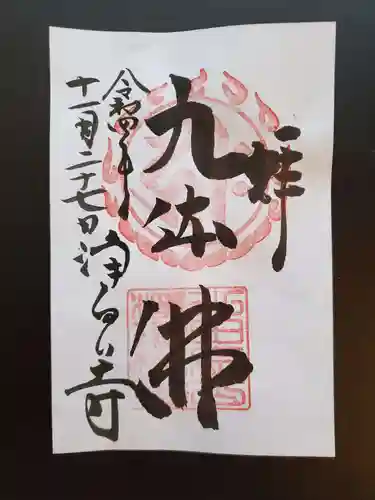 奉拝
九体佛
令和四年
十一月二十七日
浄真寺